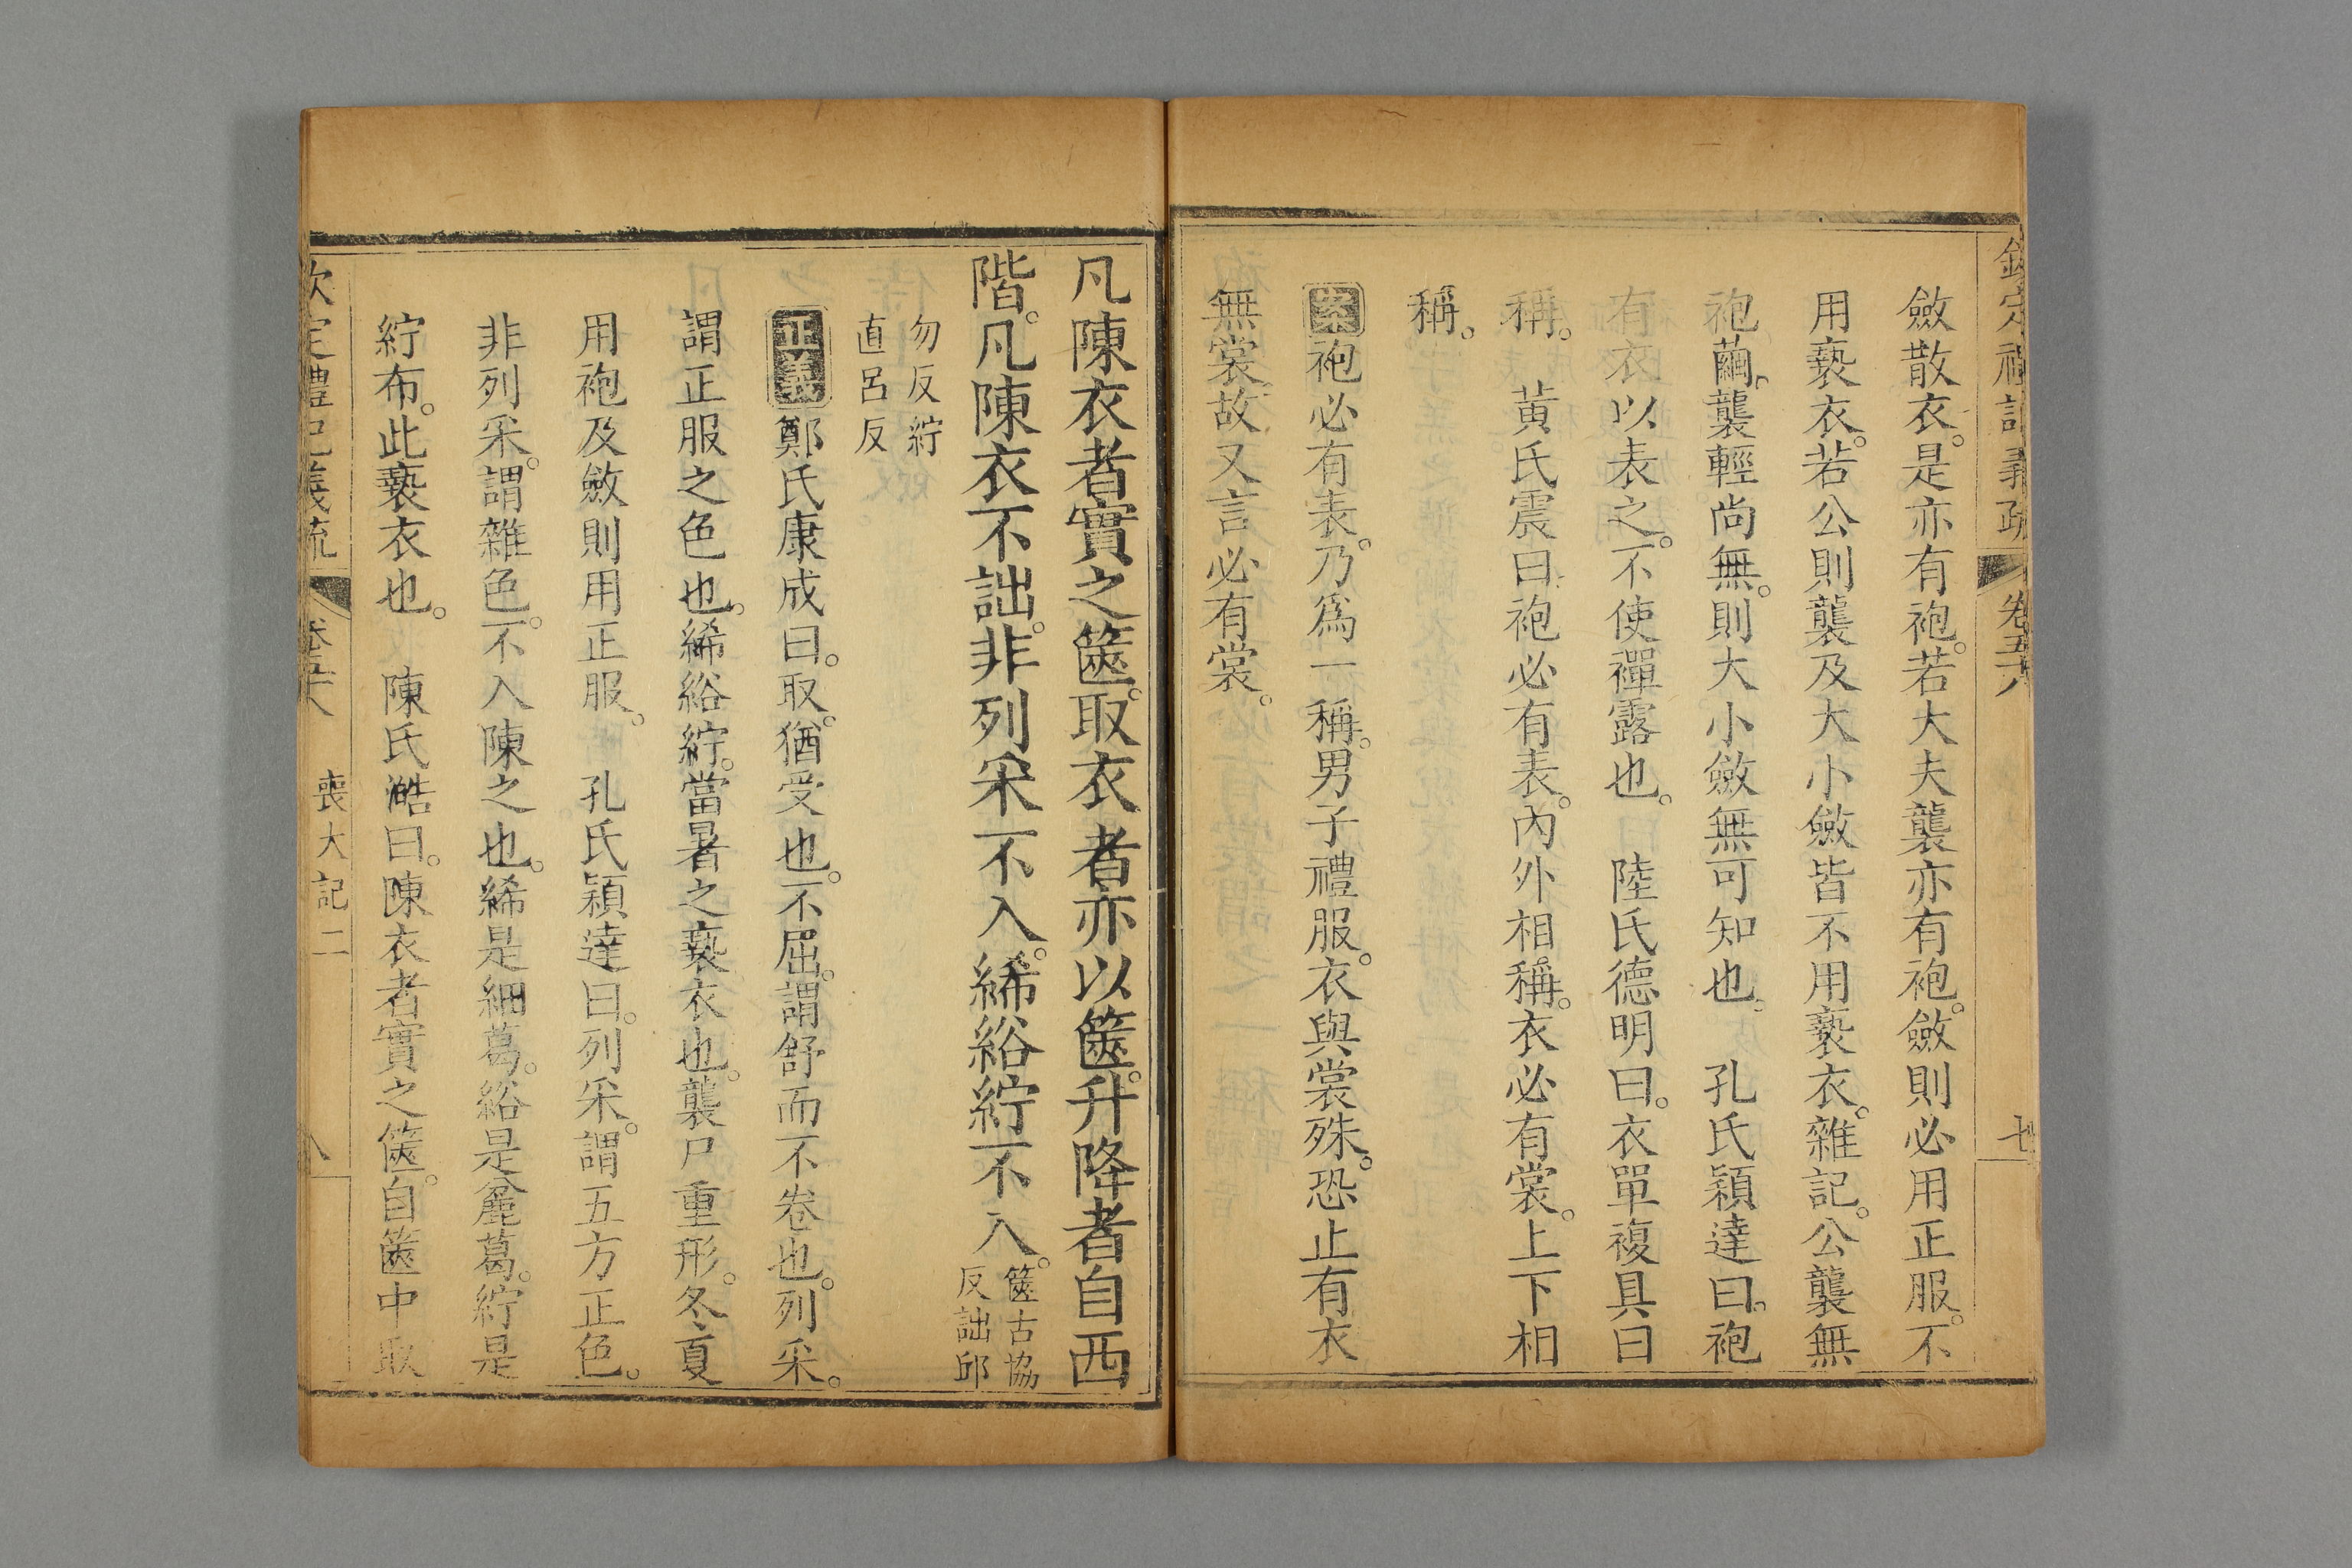 欽定禮記義疏 卷五十八 七
斂散衣。是亦有袍。若大夫襲亦有袍。斂則必用正服。不
用褻衣。若公則襲及大小斂皆不用褻衣。雜記。公襲無
袍繭。襲輕尚無。則大小斂無可知也。 孔氏穎達曰。袍
有衣以表之。不使襌露也。 陸氏德明曰。衣單複具曰
稱。 黃氏震曰袍必有表。內外相稱。衣必有裳。上下相
稱。
案袍必有表。乃爲一稱。男子禮服。衣與裳殊。恐止有衣
無裳。故又言必有裳。
凡陳衣者實之篋。取衣者亦以篋。升降者自西
階。凡陳衣不詘。非列采不入。絺綌紵不入。篋古協反詘邱
勿反紵直呂反
正義鄭氏康成曰。取。猶受也。不屈。謂舒而不卷也。列采。
謂正服之色也。絺綌紵。當暑之褻衣也。襲尸重形。冬夏
用袍及斂則用正服。 孔氏穎達曰。列采。謂五方正色。
非列采。謂雜色。不入陳之也。絺是細葛。綌是麤葛。紵是
紵布。此褻衣也。 陳氏澔曰。陳衣者實之篋。自篋中取
欽定禮記義疏 卷五十八 喪大記二 八